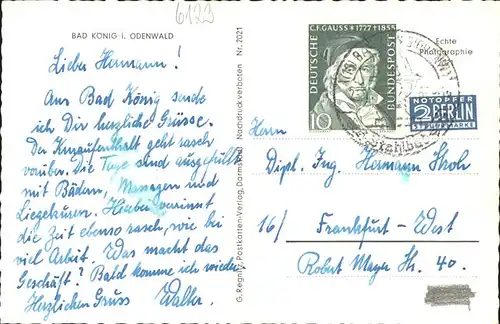 6129
BAD KÖNIG I. ODENWALD
Lieber Hermann!
Aus Bad König sende
ich Dir herzliche Grüsse.
Der Kuraufenthalt geht rasch
vorüber. Die Tage sind ausgefüllt
mit Bädern, und
Liegekuren. Hierbei verrinnt
die Zeit ebenso rasch, wie bei
viel Arbeit. Was macht das
Geschäft? Bald komme ich wieder.
Herzlichen Gruss Walter.
G. Regnier, Postkarten-Verlag, Darmstadt Nachdruck verboten Nr. 2021
DEUTSCHE
C.F. GAUSS * 1777 † 1855
BUNDESPOST
10
Echte
Photographie
NOTOPFER
2 BERLIN
STEUERMARKE
Herrn
Dipl. Ing. Hermann Stroh
16/ Frankfurt - West
Robert Mayer Str. 40.